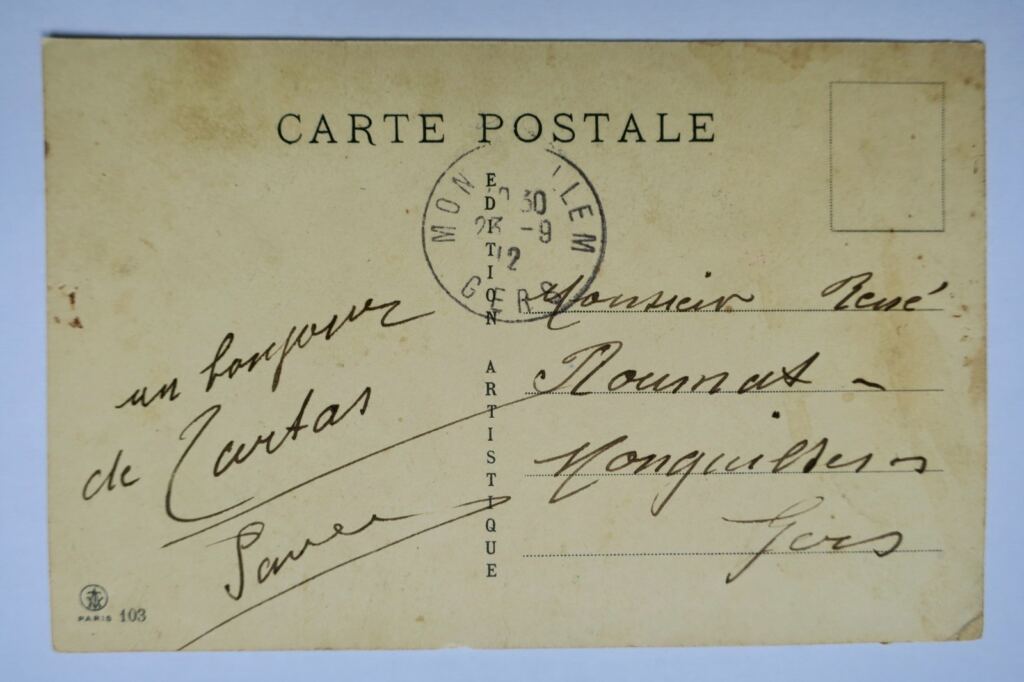 CARTE POSTALE
EDITION ARTISTIQUE
MON LLEM
30
23 -9
12
GERS
un bonjour
de Tartas
Monsieur René
Roumat -
Gers
PARIS 103